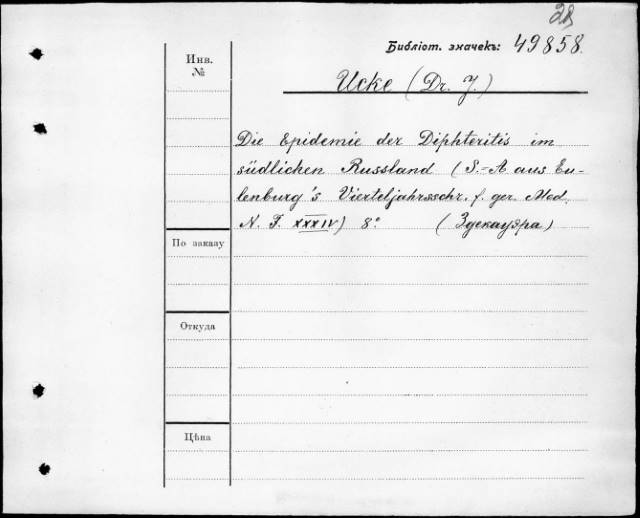 28
Библіот. значекъ: 49858.
Инв.
№
Ucke (Dr. J.)
Die Epidemie der Diphteritis im
südlichen Russland (S.-A aus Eu-
lenburg's Vierteljahrsschr. f. ger. Med.
N. F. XXXIV) 8° (Здекауэра)
По заказу
Откуда
Цѣна